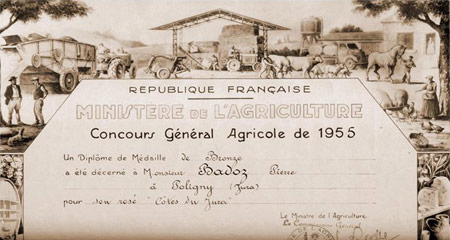 REPUBLIQUE FRANÇAISE
MINISTERE DE L'AGRICULTURE
Concours Général Agricole de 1955
Un Diplôme de Médaille de Bronze
a été décerné à Monsieur Badoz Pierre
à Poligny (Jura)
pour son rosé "Côtes du Jura"
Le Ministre de l'Agriculture
Le Commissaire Général